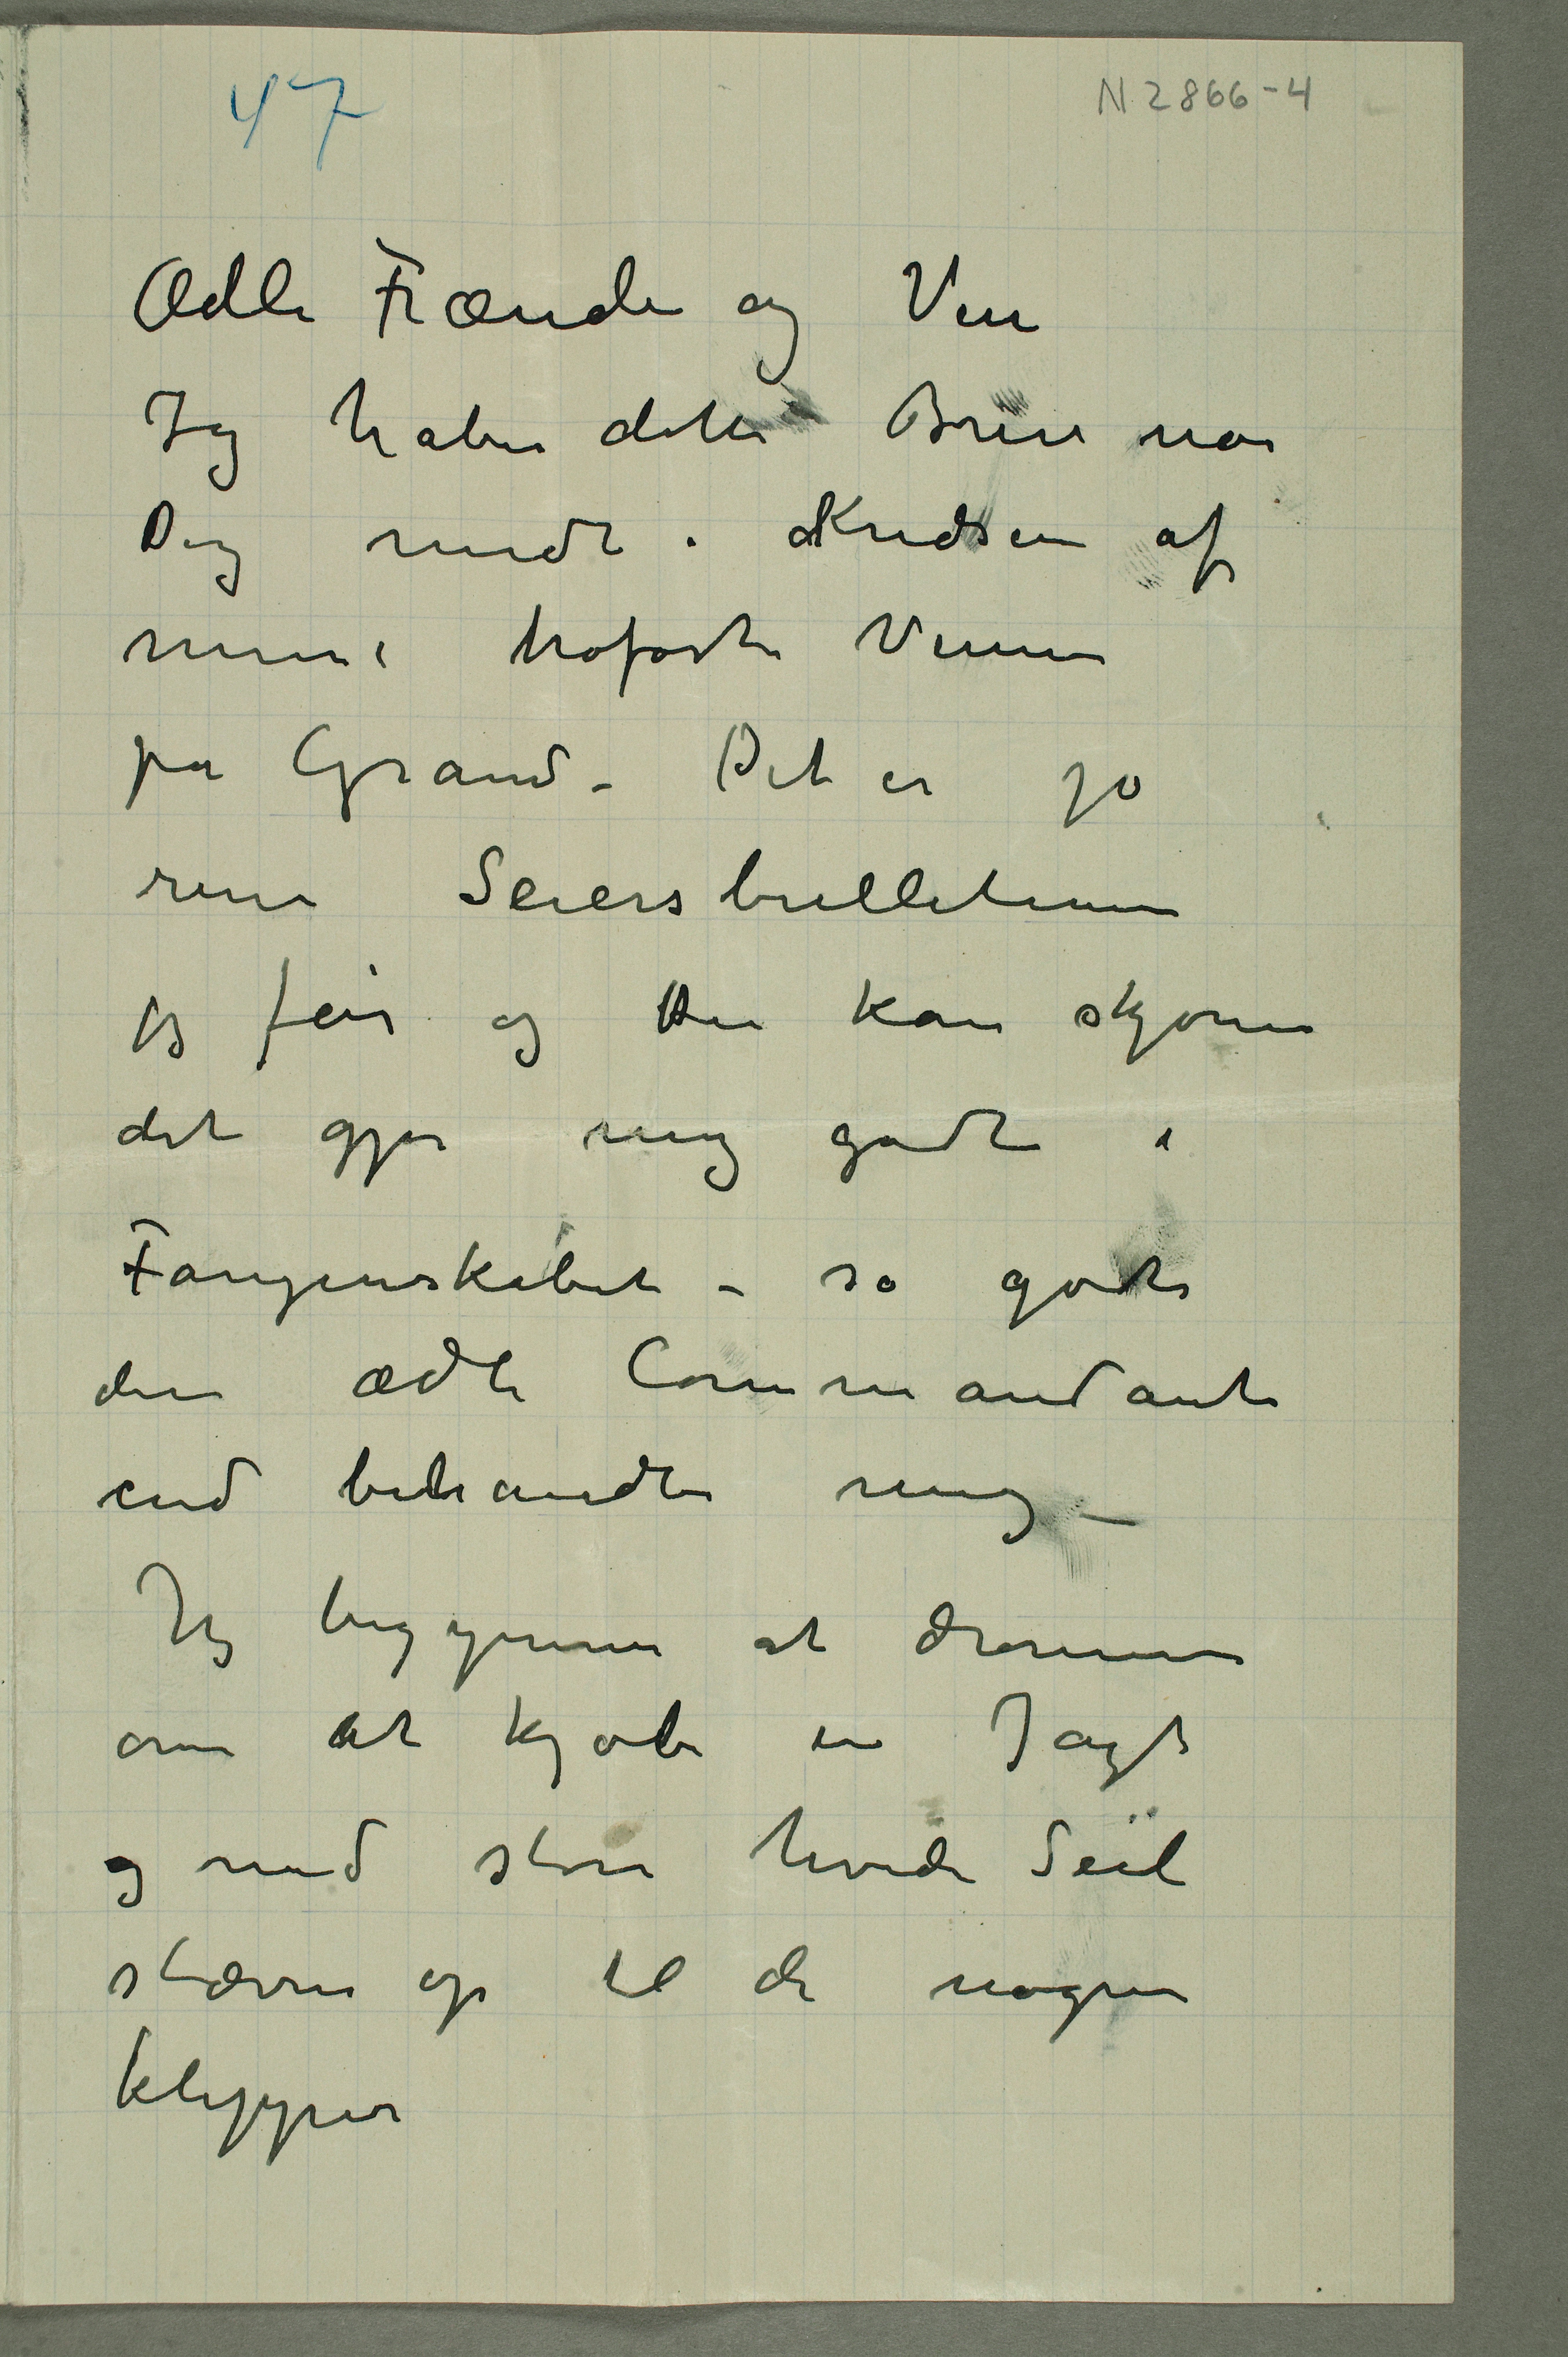 47
N 2866-4
Ædle Frænde og Ven
Jeg haber dette Brev når
Dig midt i Kredsen af
mine trofaste Venner
på Grand – Det er jo
rene Seiersbulletinen
jeg får og Du kan skjønne
det gjør mig godt i
Fangenskabet – så godt
den ædle Commandant
end behandler mig –
Jeg begynner at drømme
om at kjøbe en Jagt
og med store hvide Seil
stævne op til de nøgne
klipper